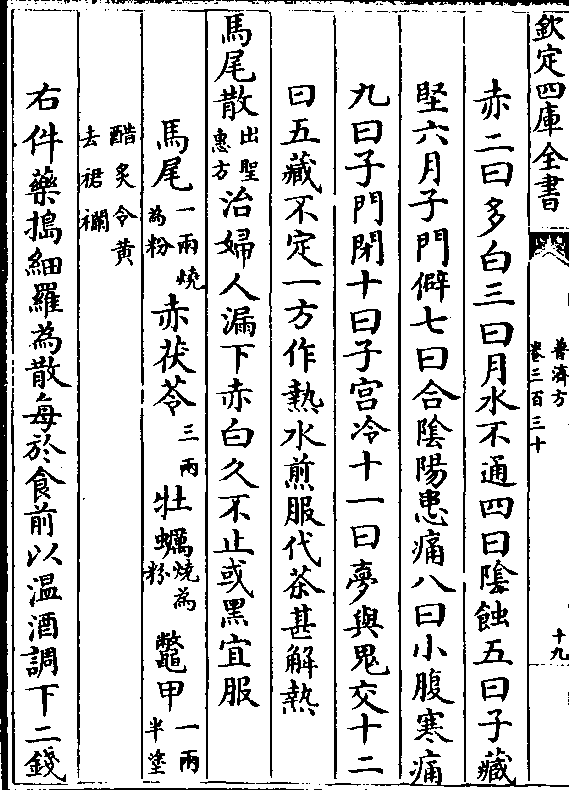 欽定四庫全書
普濟方
卷三百三十
十九
赤二曰多白三曰月水不通四曰隂蝕五曰子藏
堅六月子門僻七曰合隂陽患痛八曰小腹寒痛
九曰子門閉十曰子宫冷十一曰夢與鬼交十二
曰五藏不定一方作熱水煎服代茶甚解熱
馬尾散出聖惠方治婦人漏下赤白久不止或黑宜服
馬尾一兩燒為粉 赤茯苓三兩 牡蠣燒為粉 鼈甲一兩半塗
醋炙令黄去裙襴
右件藥搗細羅為散每於食前以温酒調下二錢